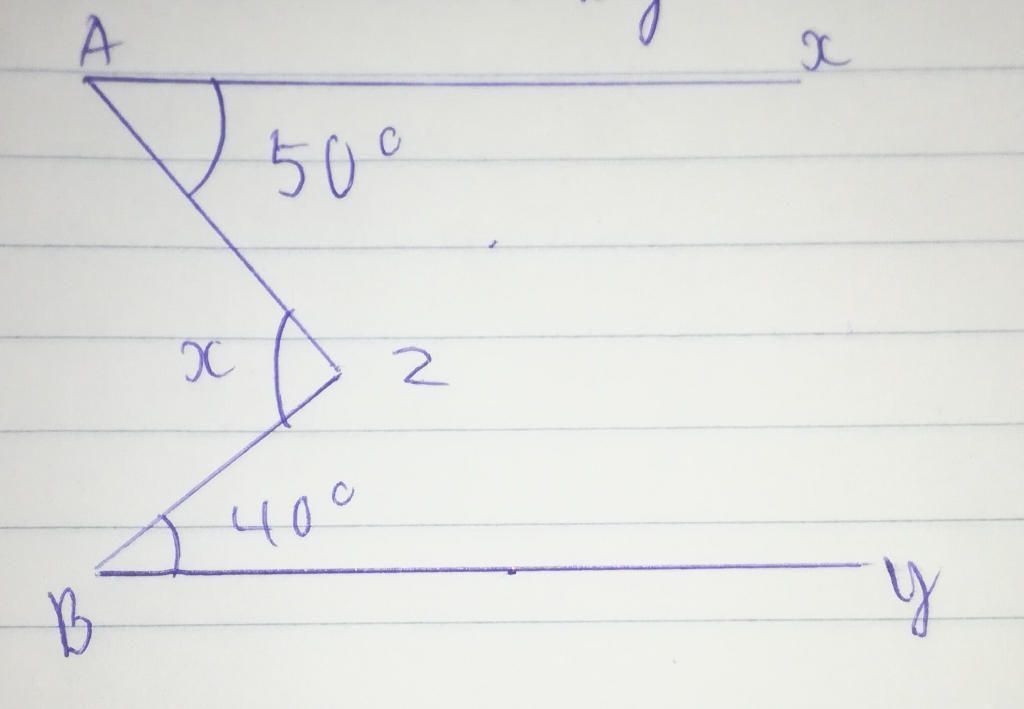 A x
50°
x z
40°
B y